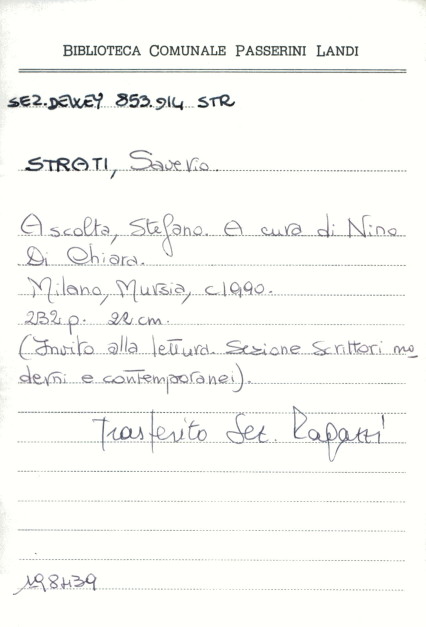 BIBLIOTECA COMUNALE PASSERINI LANDI
SEZ. DEWEY 853.914 STR
STRATI, Saverio.
Ascolta, Stefano. A cura di Nino
Di Chiara.
Milano, Mursia, c1990.
232 p. 22 cm.
(Invito alla lettura. Sezione Scrittori mo
derni e contemporanei).
Trasferito Sez. Ragazzi
198439